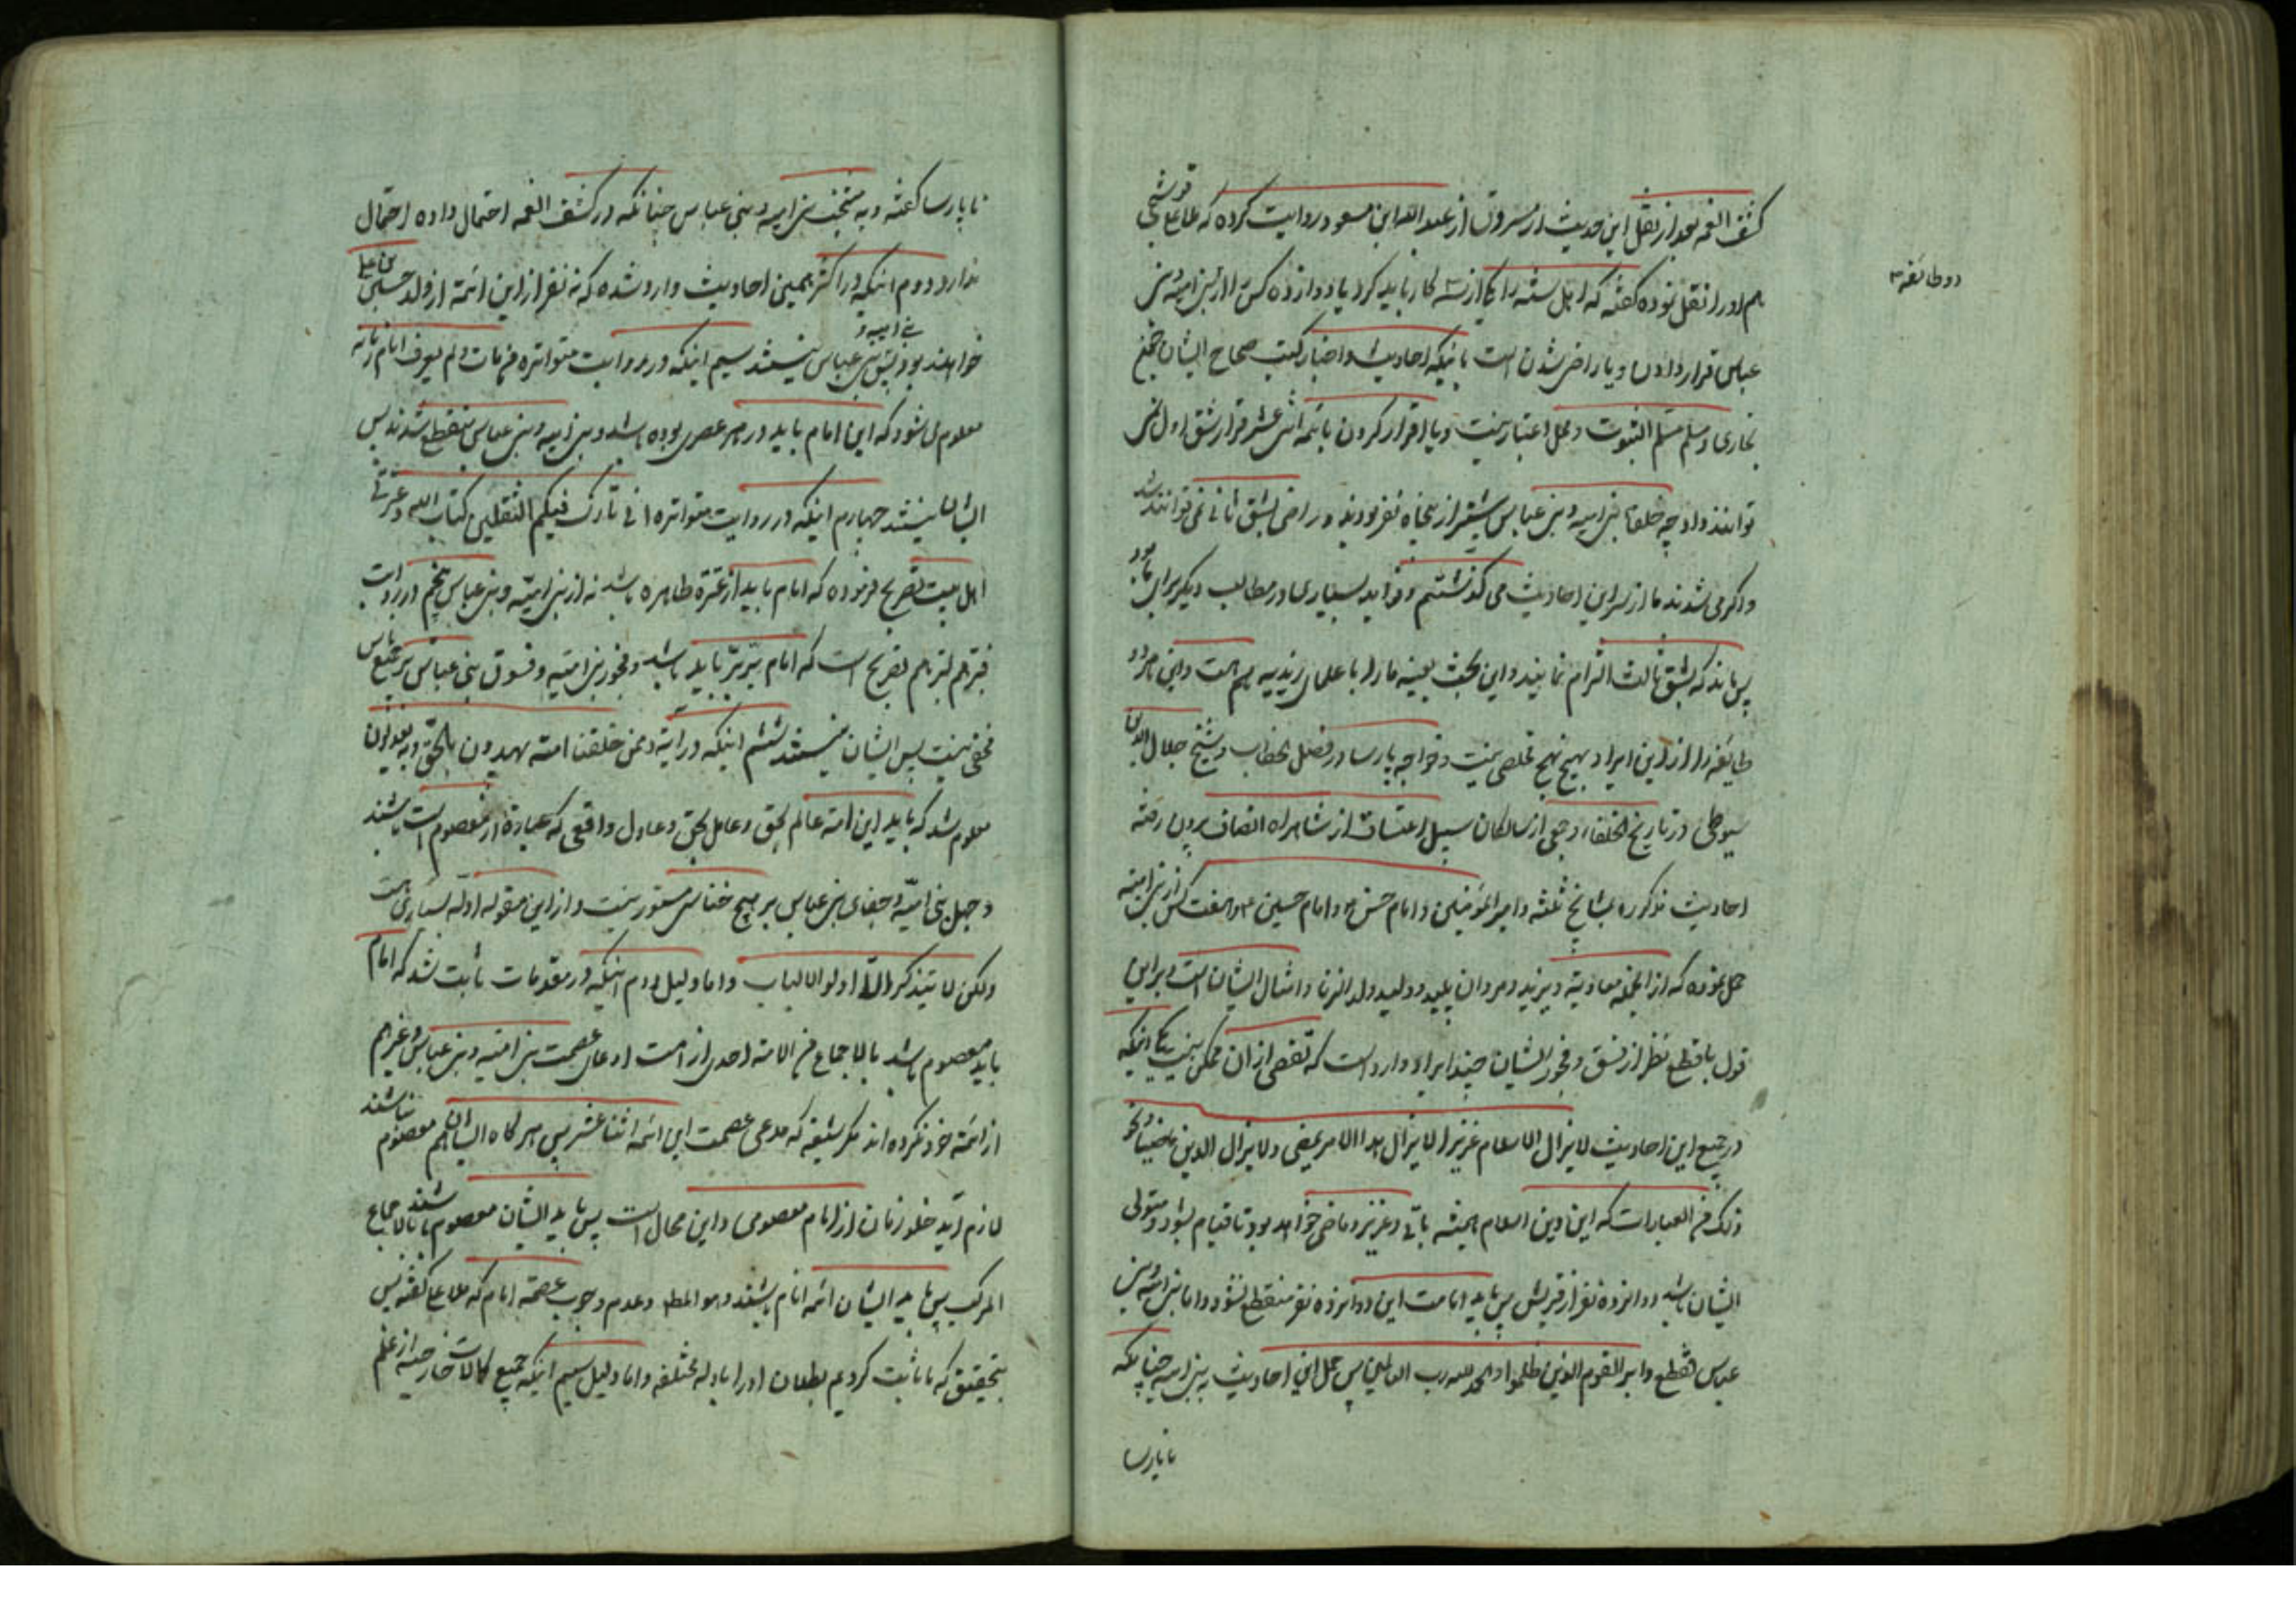 کشف الغمه بعد از نقل این حدیث از مسروق از عبد الله ابن مسعود روایت کرده که ملا علی قوشجی
هم او را نقل نموده گفته که اهل سنه را یکی از سه کار باید کرد یا دوازده کس را از بنی امیه و بنی
دو طائفه
عباس قرار دادن و یا راضی شدن است باینکه احادیث و اخبار کتب صحاح ایشان حتی
بخاری و مسلم مسلم الثبوت و محل اعتبار نیست و یا اقرار کردن بائمه اثنی عشر قرار شق اول نمی
توانند داد چه خلفاء بنی امیه و بنی عباس بیشتر از پنجاه نفر بودند و راضی بشق ثانی نمی توانند شد
و اگر می شدند ما از سر این احادیث می گذشتیم و فواید بسیاری در مطالب دیگر برای ما بود
پس ماند که بشق ثالث التزام نمایند و این بحث بعینه ما را با علمای زیدیه هم هست و این هر دو
طایفه را از این ایراد بهیچ نهج مخلصی نیست و خواجه پارسا در فصل الخطاب و شیخ جلال الدین
سیوطی در تاریخ الخلفاء و جمعی از سالکان سبیل اعتساف از شاهراه انصاف بیرون رفته
احادیث مذکوره بمشایخ ثلثه و امیر المؤمنین و امام حسن و امام حسین و هفت کس از بنی امیه
حمل نموده که از انجمله معاویه و یزید و مروان پلید و ولید ولد الزنا و امثال ایشان است و بر این
قول با قطع نظر از فسق و فجور ایشان چند ایراد وارد است که تفصی از ان ممکن نیست یکی اینکه
در جمیع این احادیث لا یزال الاسلام عزیزا لا یزال هذا الامر یمضی و لا یزال الدین ماضیا و نحو
ذلک من العبارات که این دین اسلام همیشه باقی و عزیز و ماضی خواهد بود تا قیام بشود و متولی
ایشان باشد دوازده نفر از قریش پس باید امامت این دوازده نفر منقطع نشود و اما بنی امیه و بنی
عباس فقطع دابر القوم الذین ظلموا و الحمد لله رب العالمین پس حمل این احادیث به بنی امیه چنانکه
تا پارسا
تا پارسا گفته و به منتخب بنی امیه و بنی عباس چنانکه در کشف الغمه احتمال داده احتمال
ندارد دوم اینکه در اکثر همین احادیث وارد شده که نه نفر از این ائمه از ولد حسین بن علی
خواهند بود پس بنی امیه و بنی عباس نیستند سیم اینکه در روایت متواتره من مات و لم یعرف امام زمانه
معلوم می شود که این امام باید در هر عصری بوده باشد و بنی امیه و بنی عباس منقطع شدند پس
ایشان نیستند چهارم اینکه در روایت متواتره انی تارک فیکم الثقلین کتاب الله و عترتی
اهل بیت تصریح فرموده که امام باید از عترة طاهره باشد نه از بنی امیه و بنی عباس پنجم در روایت
تصریح است که امام باید باشد و فجور بنی امیه و فسوق بنی عباس بر جمیع ناس
مخفی نیست پس ایشان نیستند ششم اینکه در آیة و ممن خلقنا امة یهدون بالحق و به یعدلون
معلوم شد که باید این امة عالم بحق و عامل بحق و عادل واقعی که عبارة از معصوم است باشند
و جهل بنی امیه و جفای بنی عباس بر هیچ خناسی مستور نیست و از این مقوله ادله بسیاری هست
ولکن لا یتذکر الا اولو الالباب و اما دلیل دوم اینکه در مقدمات ثابت شد که امام
باید معصوم باشد بالاجماع من الامة احدی از امت ادعای عصمت بنی امیه و بنی عباس و غیرهم
از ائمه خود نکرده اند مگر شیعه که مدعی عصمت این ائمه اثنا عشر پس هر گاه ایشان هم معصوم نباشند
لازم آید خلو زمان از امام معصومی و این محال است پس باید ایشان معصوم باشند بالاجماع
المرکب پس باید ایشان ائمه انام باشند و هو المط و عدم وجوب عصمة امام که ملا علی گفته پس
بتحقیق که ما ثابت کردیم بطلان او را بادله مختلفه و اما دلیل سیم اینکه جمیع کمالات خارجیه از علم